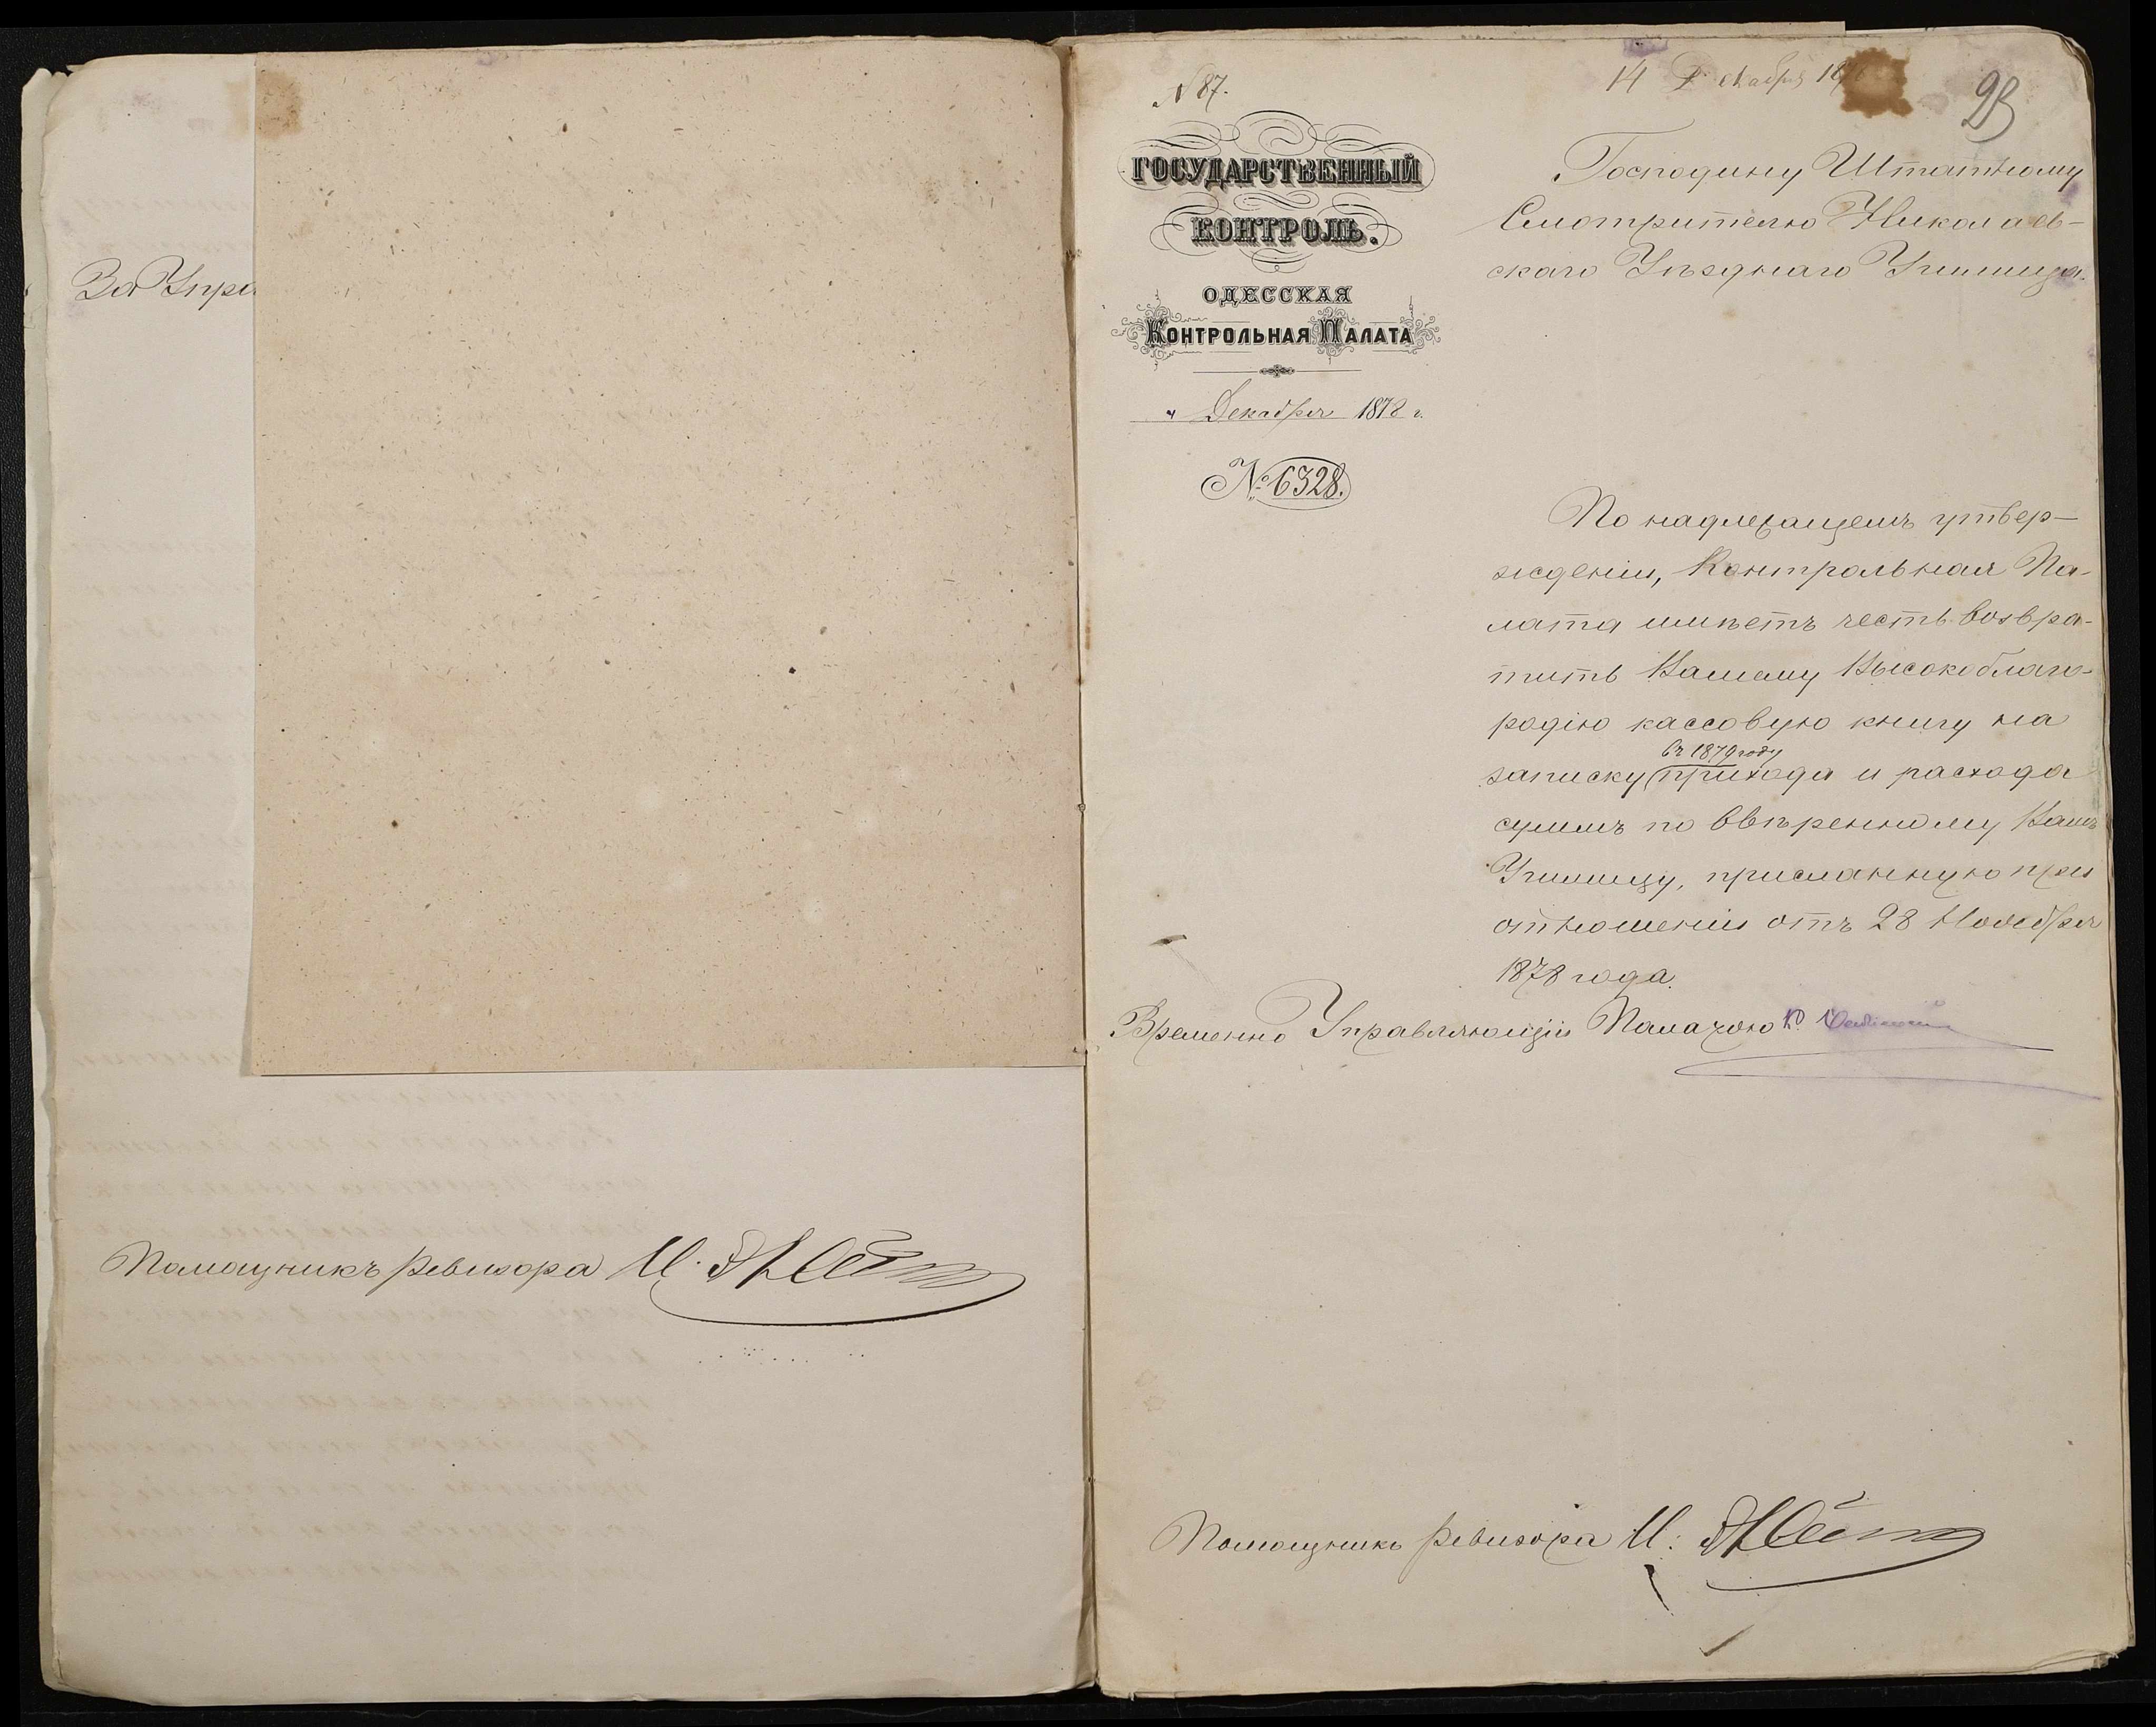 За Упра
Помощникъ Ревизора И.
N 87.
14 Декабря 18
ГОСУДАРСТВЕННЫЙ
КОНТРОЛЬ.
ОДЕССКАЯ
КОНТРОЛЬНАЯ ПАЛАТА
" Декабря 1878 г.
№ 6328.
Господину Штатному
Смотрителю Николаев-
скаго Уѣзднаго Училища.
По надлежащемъ утвер-
жденіи, Контрольная Па-
лата имѣетъ честь возвра-
тить Вашему Высокоблаго-
родію кассовую книгу на
въ 1879 году
записку прихода и расхода
суммъ по ввѣренному Вамъ
Училищу, присланную при
отношеніи отъ 28 Ноября
1878 года.
Временно Управляющій Палатою
Помощникъ Ревизора И.